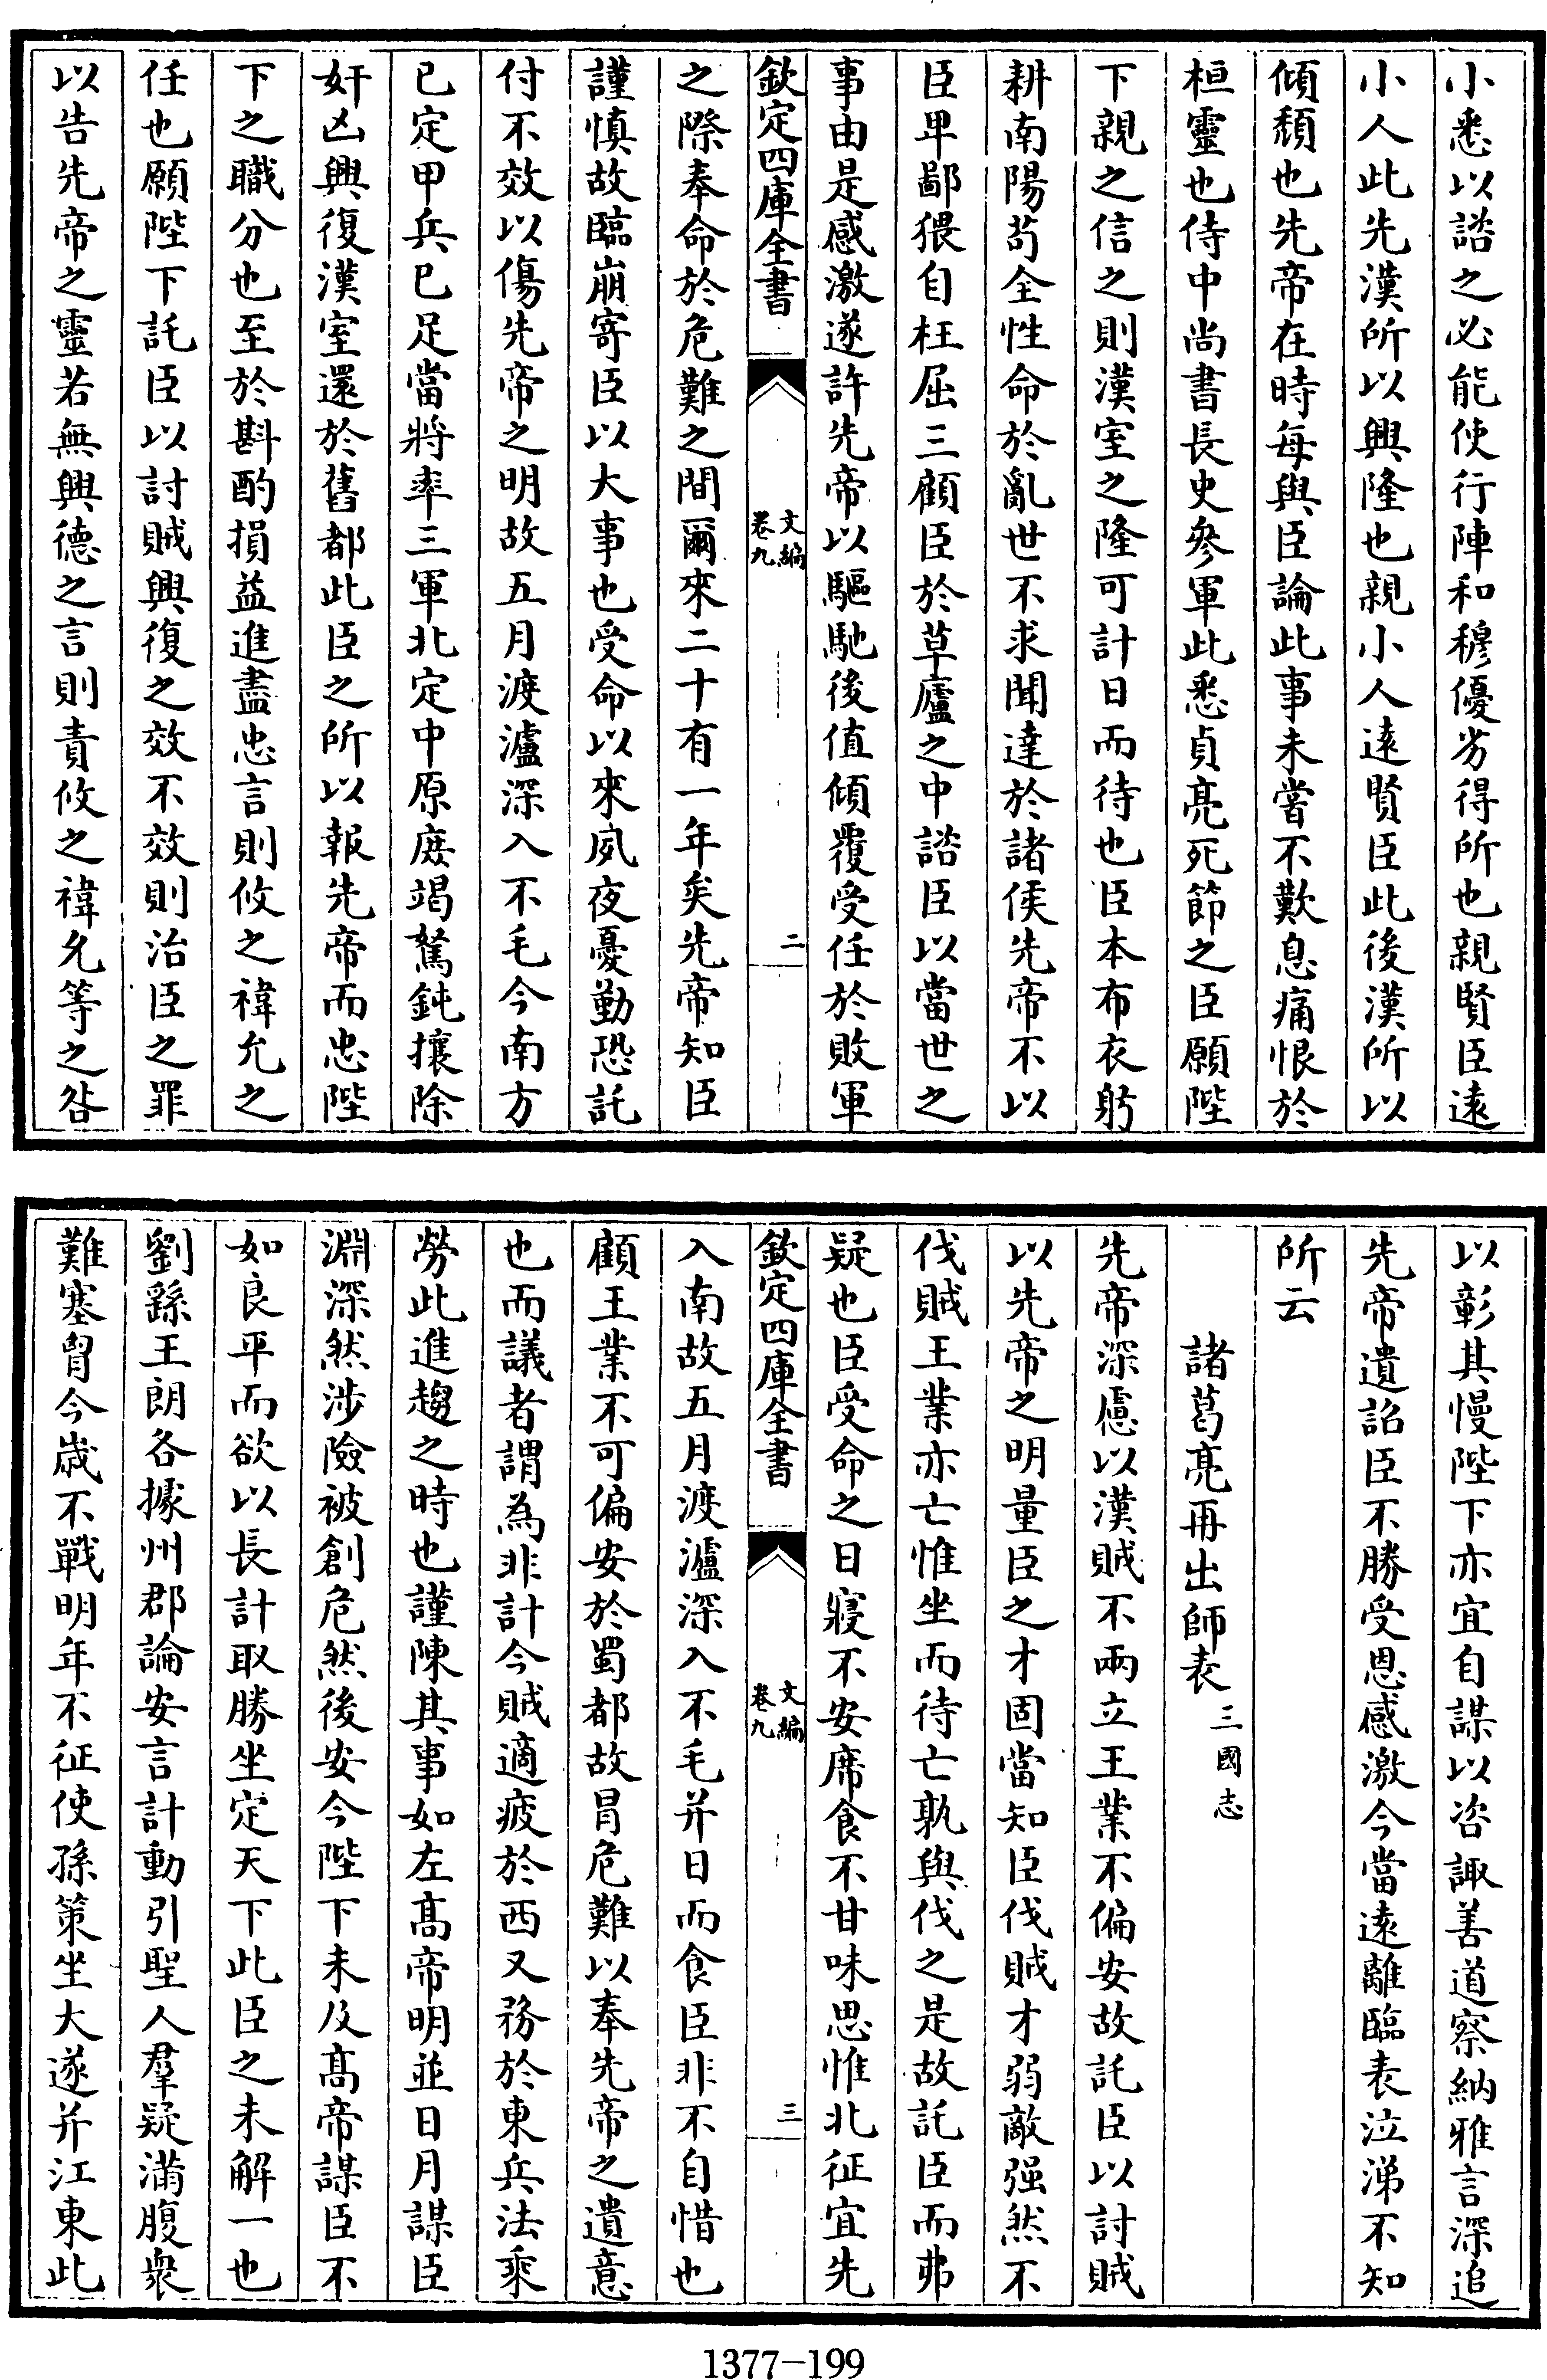 小悉以諮之必能使行陣和穆優劣得所也親賢臣遠
小人此先漢所以興隆也親小人遠賢臣此後漢所以
傾頹也先帝在時每與臣論此事未嘗不歎息痛恨於
桓靈也侍中尚書長史參軍此悉貞亮死節之臣願陛
下親之信之則漢室之隆可計日而待也臣本布衣躬
耕南陽苟全性命於亂世不求聞達於諸侯先帝不以
臣卑鄙猥自枉屈三顧臣於草廬之中諮臣以當世之
事由是感激遂許先帝以驅馳後值傾覆受任於敗軍
欽定四庫全書
文編
卷九
二
之際奉命於危難之間爾來二十有一年矣先帝知臣
謹慎故臨崩寄臣以大事也受命以來夙夜憂勤恐託
付不效以傷先帝之明故五月渡瀘深入不毛今南方
已定甲兵已足當將率三軍北定中原庶竭駑鈍攘除
奸凶興復漢室還於舊都此臣之所以報先帝而忠陛
下之職分也至於斟酌損益進盡忠言則攸之禕允之
任也願陛下託臣以討賊興復之效不效則治臣之罪
以告先帝之靈若無興德之言則責攸之禕允等之咎
以彰其慢陛下亦宜自謀以咨諏善道察納雅言深追
先帝遺詔臣不勝受恩感激今當遠離臨表泣涕不知
所云
諸葛亮再出師表 三國志
先帝深慮以漢賊不兩立王業不偏安故託臣以討賊
以先帝之明量臣之才固當知臣伐賊才弱敵强然不
伐賊王業亦亡惟坐而待亡孰與伐之是故託臣而弗
疑也臣受命之日寢不安席食不甘味思惟北征宜先
欽定四庫全書
文編
卷九
三
入南故五月渡瀘深入不毛并日而食臣非不自惜也
顧王業不可偏安於蜀都故冒危難以奉先帝之遺意
也而議者謂為非計今賊適疲於西又務於東兵法乘
勞此進趨之時也謹陳其事如左高帝明並日月謀臣
淵深然涉險被創危然後安今陛下未及高帝謀臣不
如良平而欲以長計取勝坐定天下此臣之未解一也
劉繇王朗各據州郡論安言計動引聖人羣疑滿腹衆
難塞胷今歲不戰明年不征使孫策坐大遂并江東此
1377-199